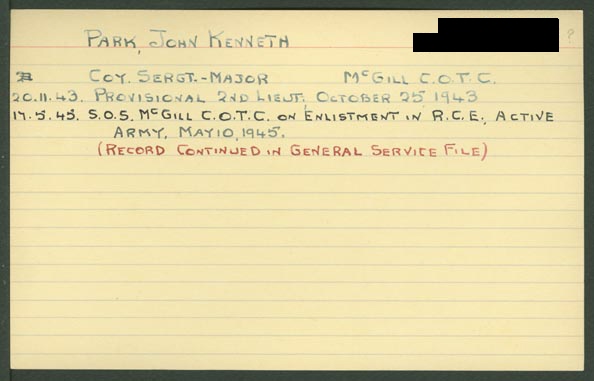 PARK, JOHN KENNETH ?
COY. SERGT.-MAJOR McGILL C.O.T.C.
20.11.43. PROVISIONAL 2ND LIEUT, OCTOBER 25 1943
17.5.45. S.O.S. McGILL C.O.T.C. ON ENLISTMENT IN R.C.E., ACTIVE
ARMY, MAY 10, 1945.
(RECORD CONTINUED IN GENERAL SERVICE FILE)